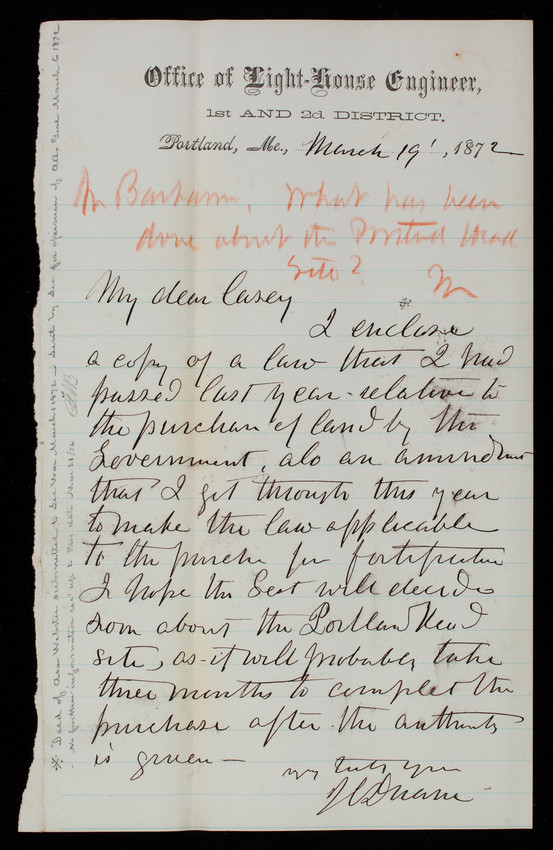 Office of Light-House Engineer,
1st AND 2d DISTRICT.
Portland, Me., March 19, 1872
Mr Barham. What has been
done about the Portland Head
Site?
My dear Casey
I enclose
a copy of a law that I had
passed last year relative to
the purchase of land by the
Government, also an amendment
that I got through this year
to make the law applicable
to the purchase for fortification
I hope the Sect will decide
soon about the Portland Head
site, as it will probably take
three months to complete the
purchase after the authority
is given —
very truly yours
J C Duane
* Deed of Webster submitted to Sec War March 1 1872 — sent by Sec for opinion of Att. Genl March 6 1872
— No further information rec'd up to this date Mar